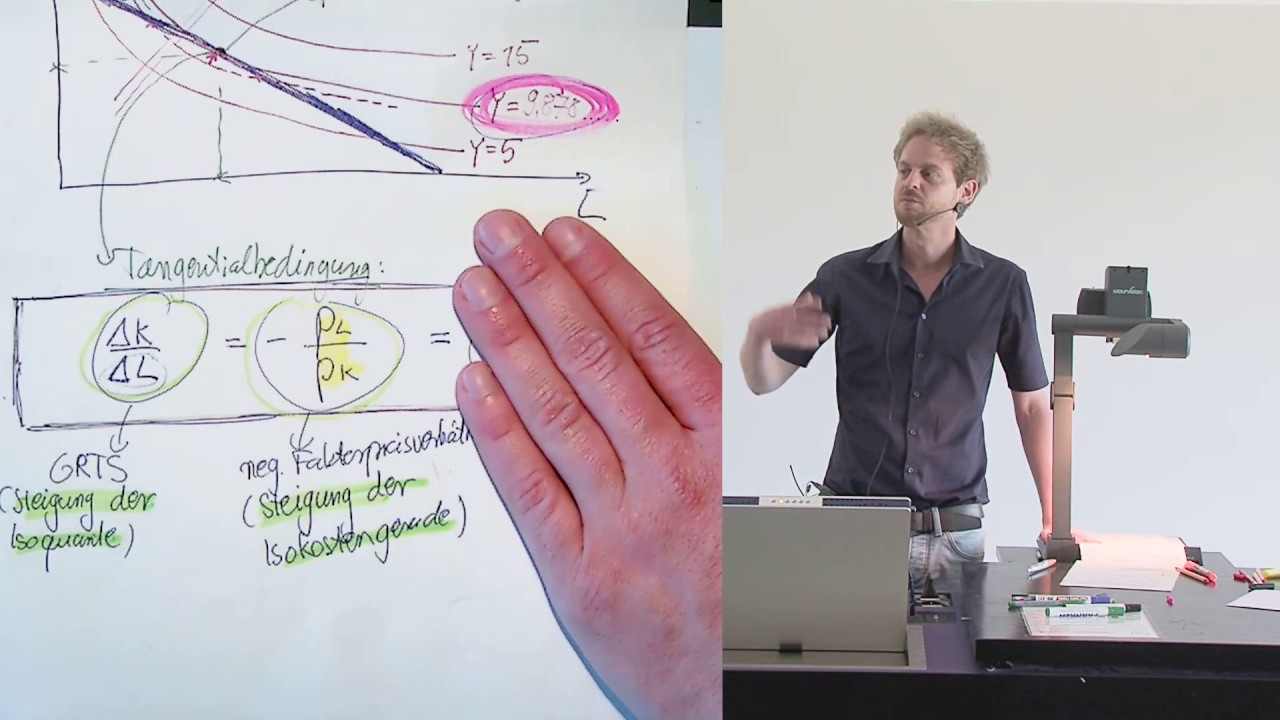 Y=15
Y=9,878....
Y=5
L
Tangentialbedingung:
ΔK
ΔL
=
- PL
PK
=
GRTS
(Steigung der
Isoquante)
neg. Faktorpreisverhält
(Steigung der
Isokostengerade)
WOLFVISION